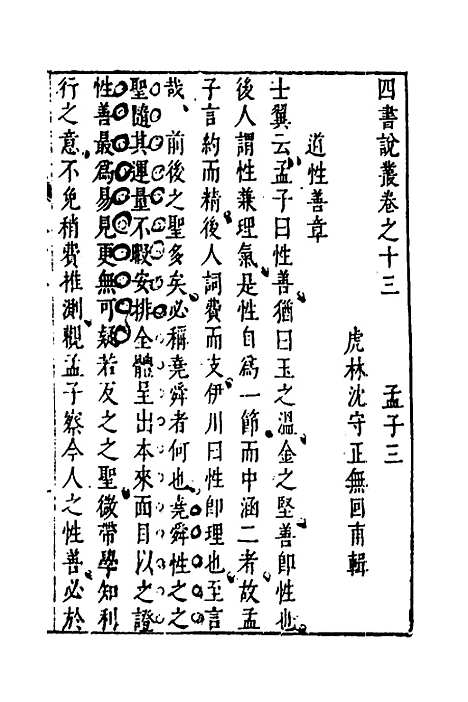 四書說叢卷之十三　孟子三
虎林沈守正無回甫輯
道性善章
士翼云孟子曰性善猶曰玉之溫金之堅善卽性也
後人謂性兼理氣是性自爲一節而中涵二者故孟
子言約而精後人詞費而支伊川曰性卽理也至言
哉前後之聖多矣必稱堯舜者何也堯舜性之之
聖隨其運量不暇安排全體呈出本來面目以之證
性善最爲易見更無可疑若反之之聖微帶學知利
行之意不免稍費推測觀孟子察今人之性善必於